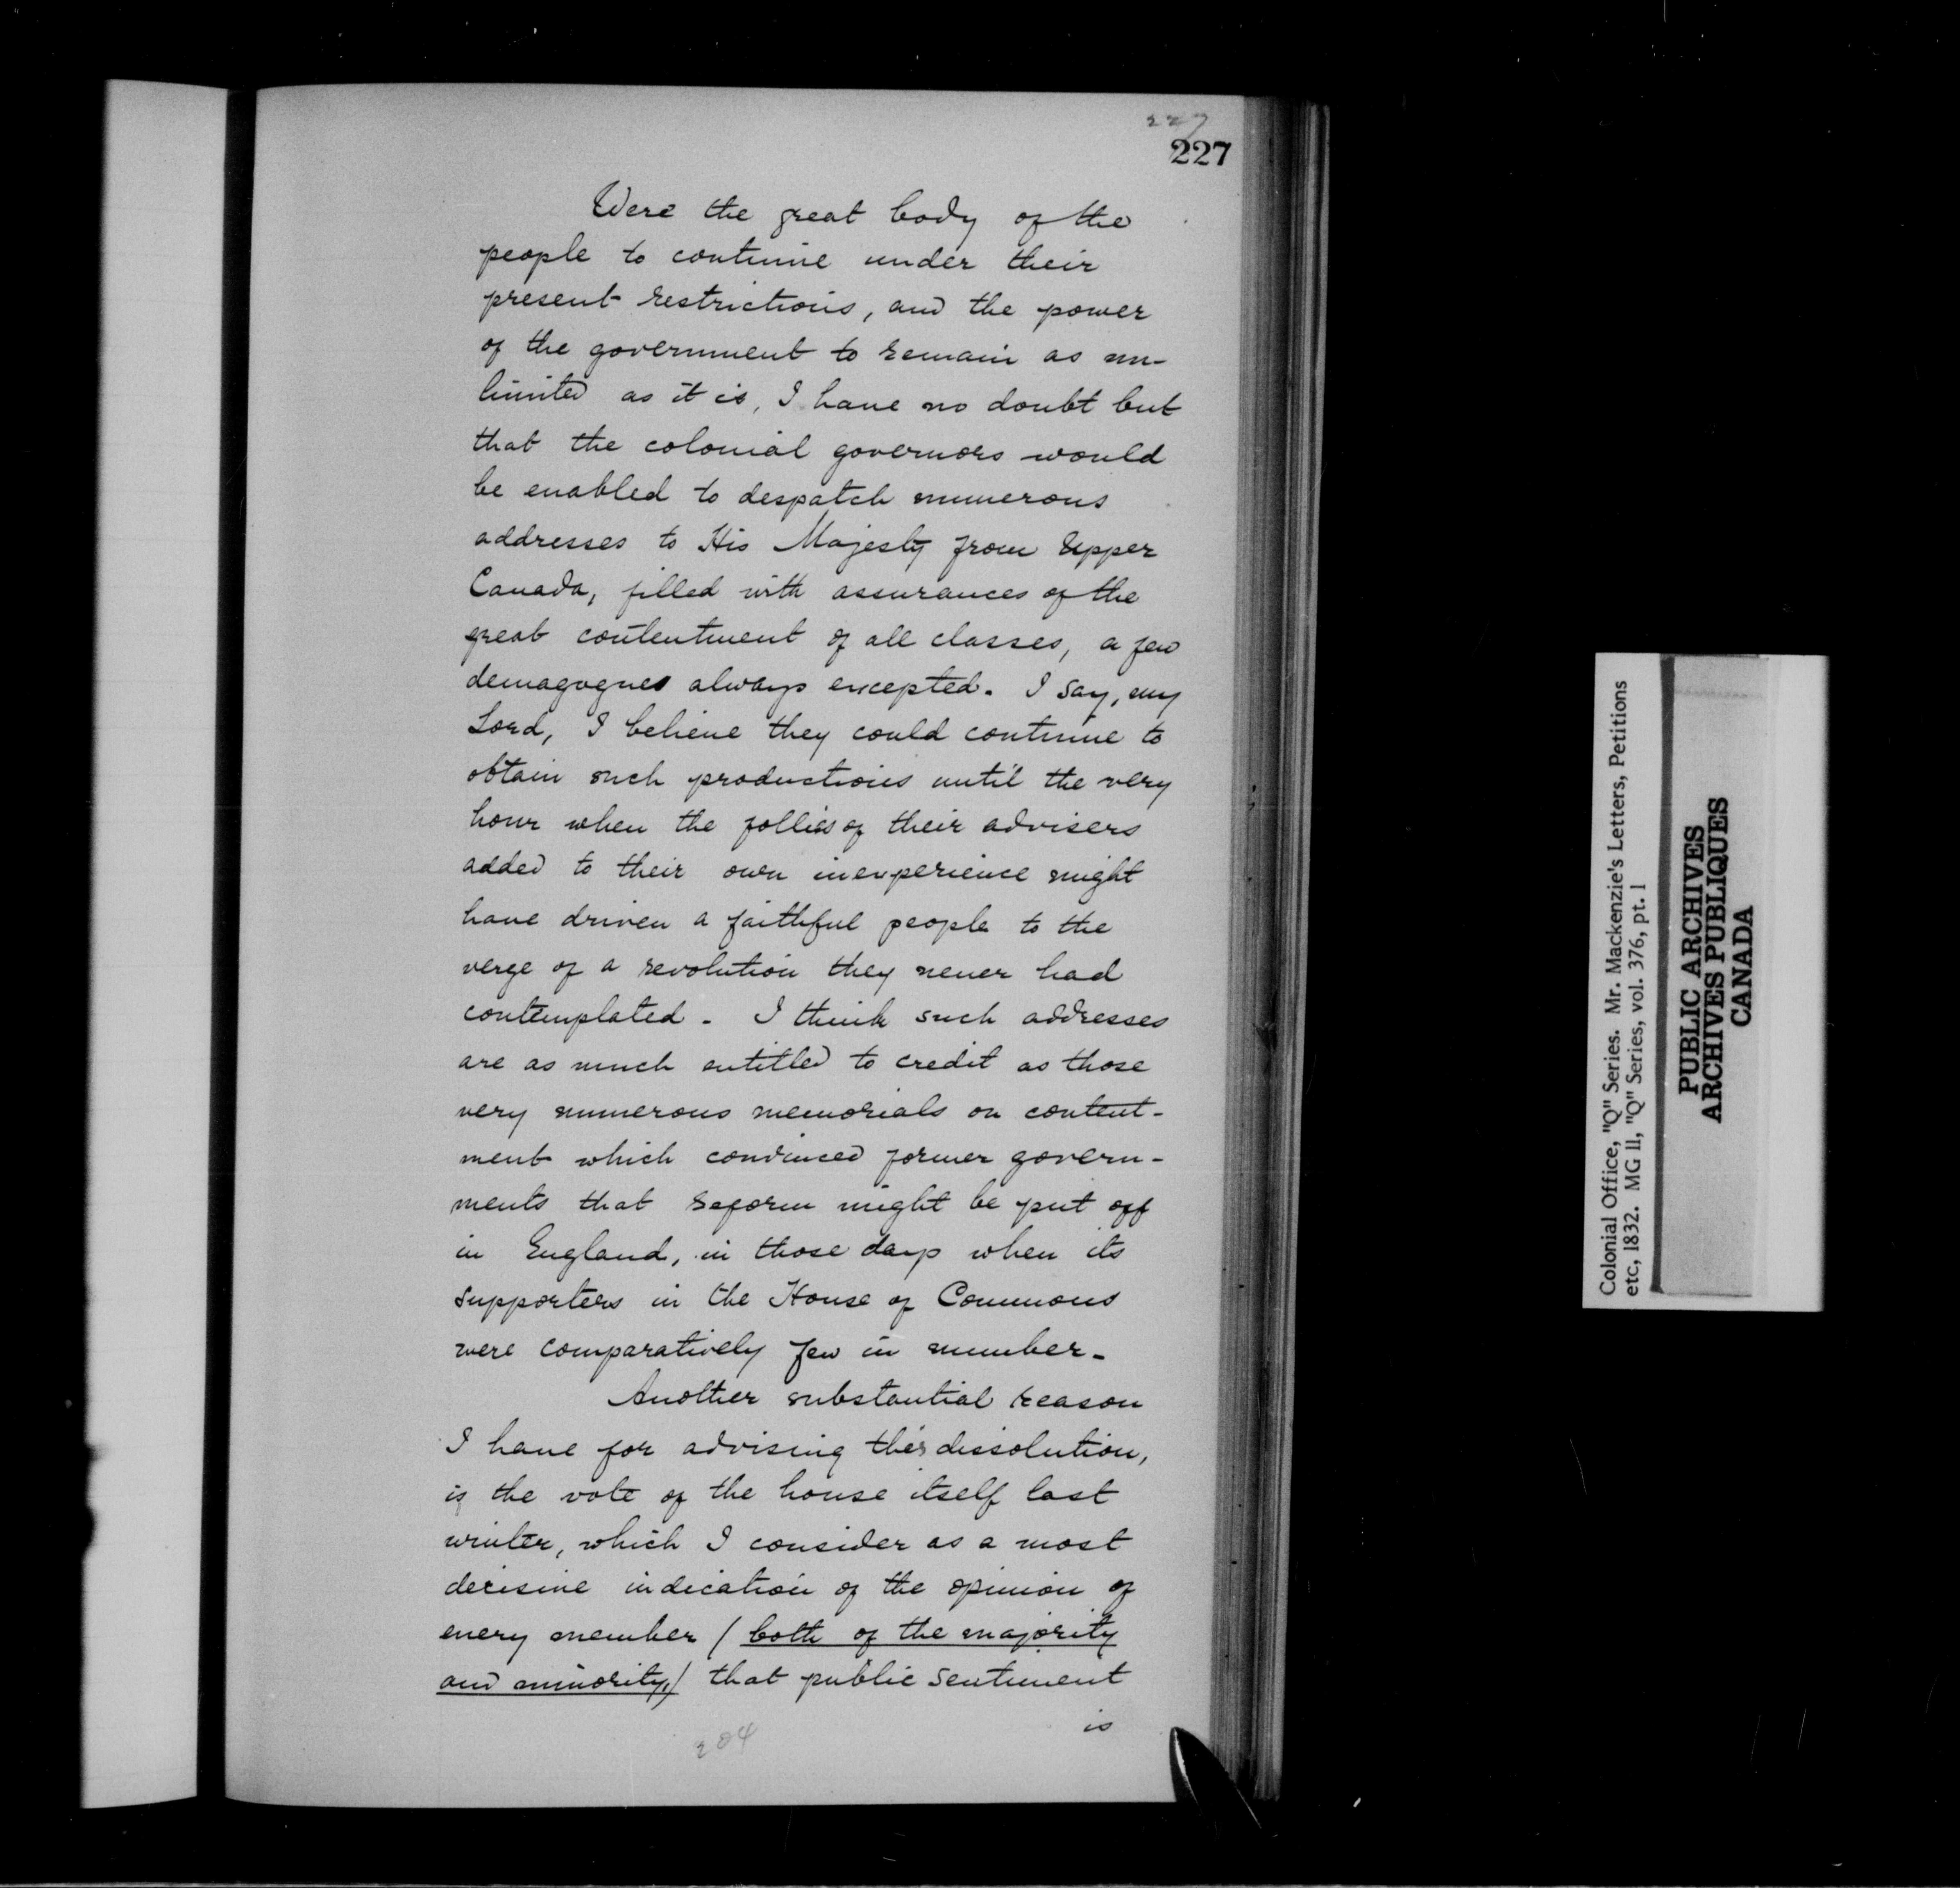 227
227
Were the great body of the
people to continue under their
present restrictions, and the power
of the government to remain as un-
limited as it is, I have no doubt but
that the colonial governors would
be enabled to despatch numerous
addresses to His Majesty from Upper
Canada, filled with assurances of the
great contentment of all classes, a few
demagogues always excepted. I say, my
Lord, I believe they could continue to
obtain such productions until the very
hour when the follies of their advisers
added to their own inexperience might
have driven a faithful people to the
verge of a revolution they never had
contemplated - I think such addresses
are as much entitled to credit as those
very numerous memorials on content-
ment which convinced former govern-
ments that reform might be put off
in England, in those days when its
supporters in the House of Commons
were comparatively few in number -
Another substantial reason
I have for advising this dissolution,
is the vote of the house itself last
winter, which I consider as a most
decisive indication of the opinion of
every member (both of the majority
and minority,) that public sentiment
is
204
Colonial Office, "Q" Series. Mr. Mackenzie's Letters, Petitions
etc, 1832. MG 11, "Q" Series, vol. 376, pt. 1
PUBLIC ARCHIVES
ARCHIVES PUBLIQUES
CANADA